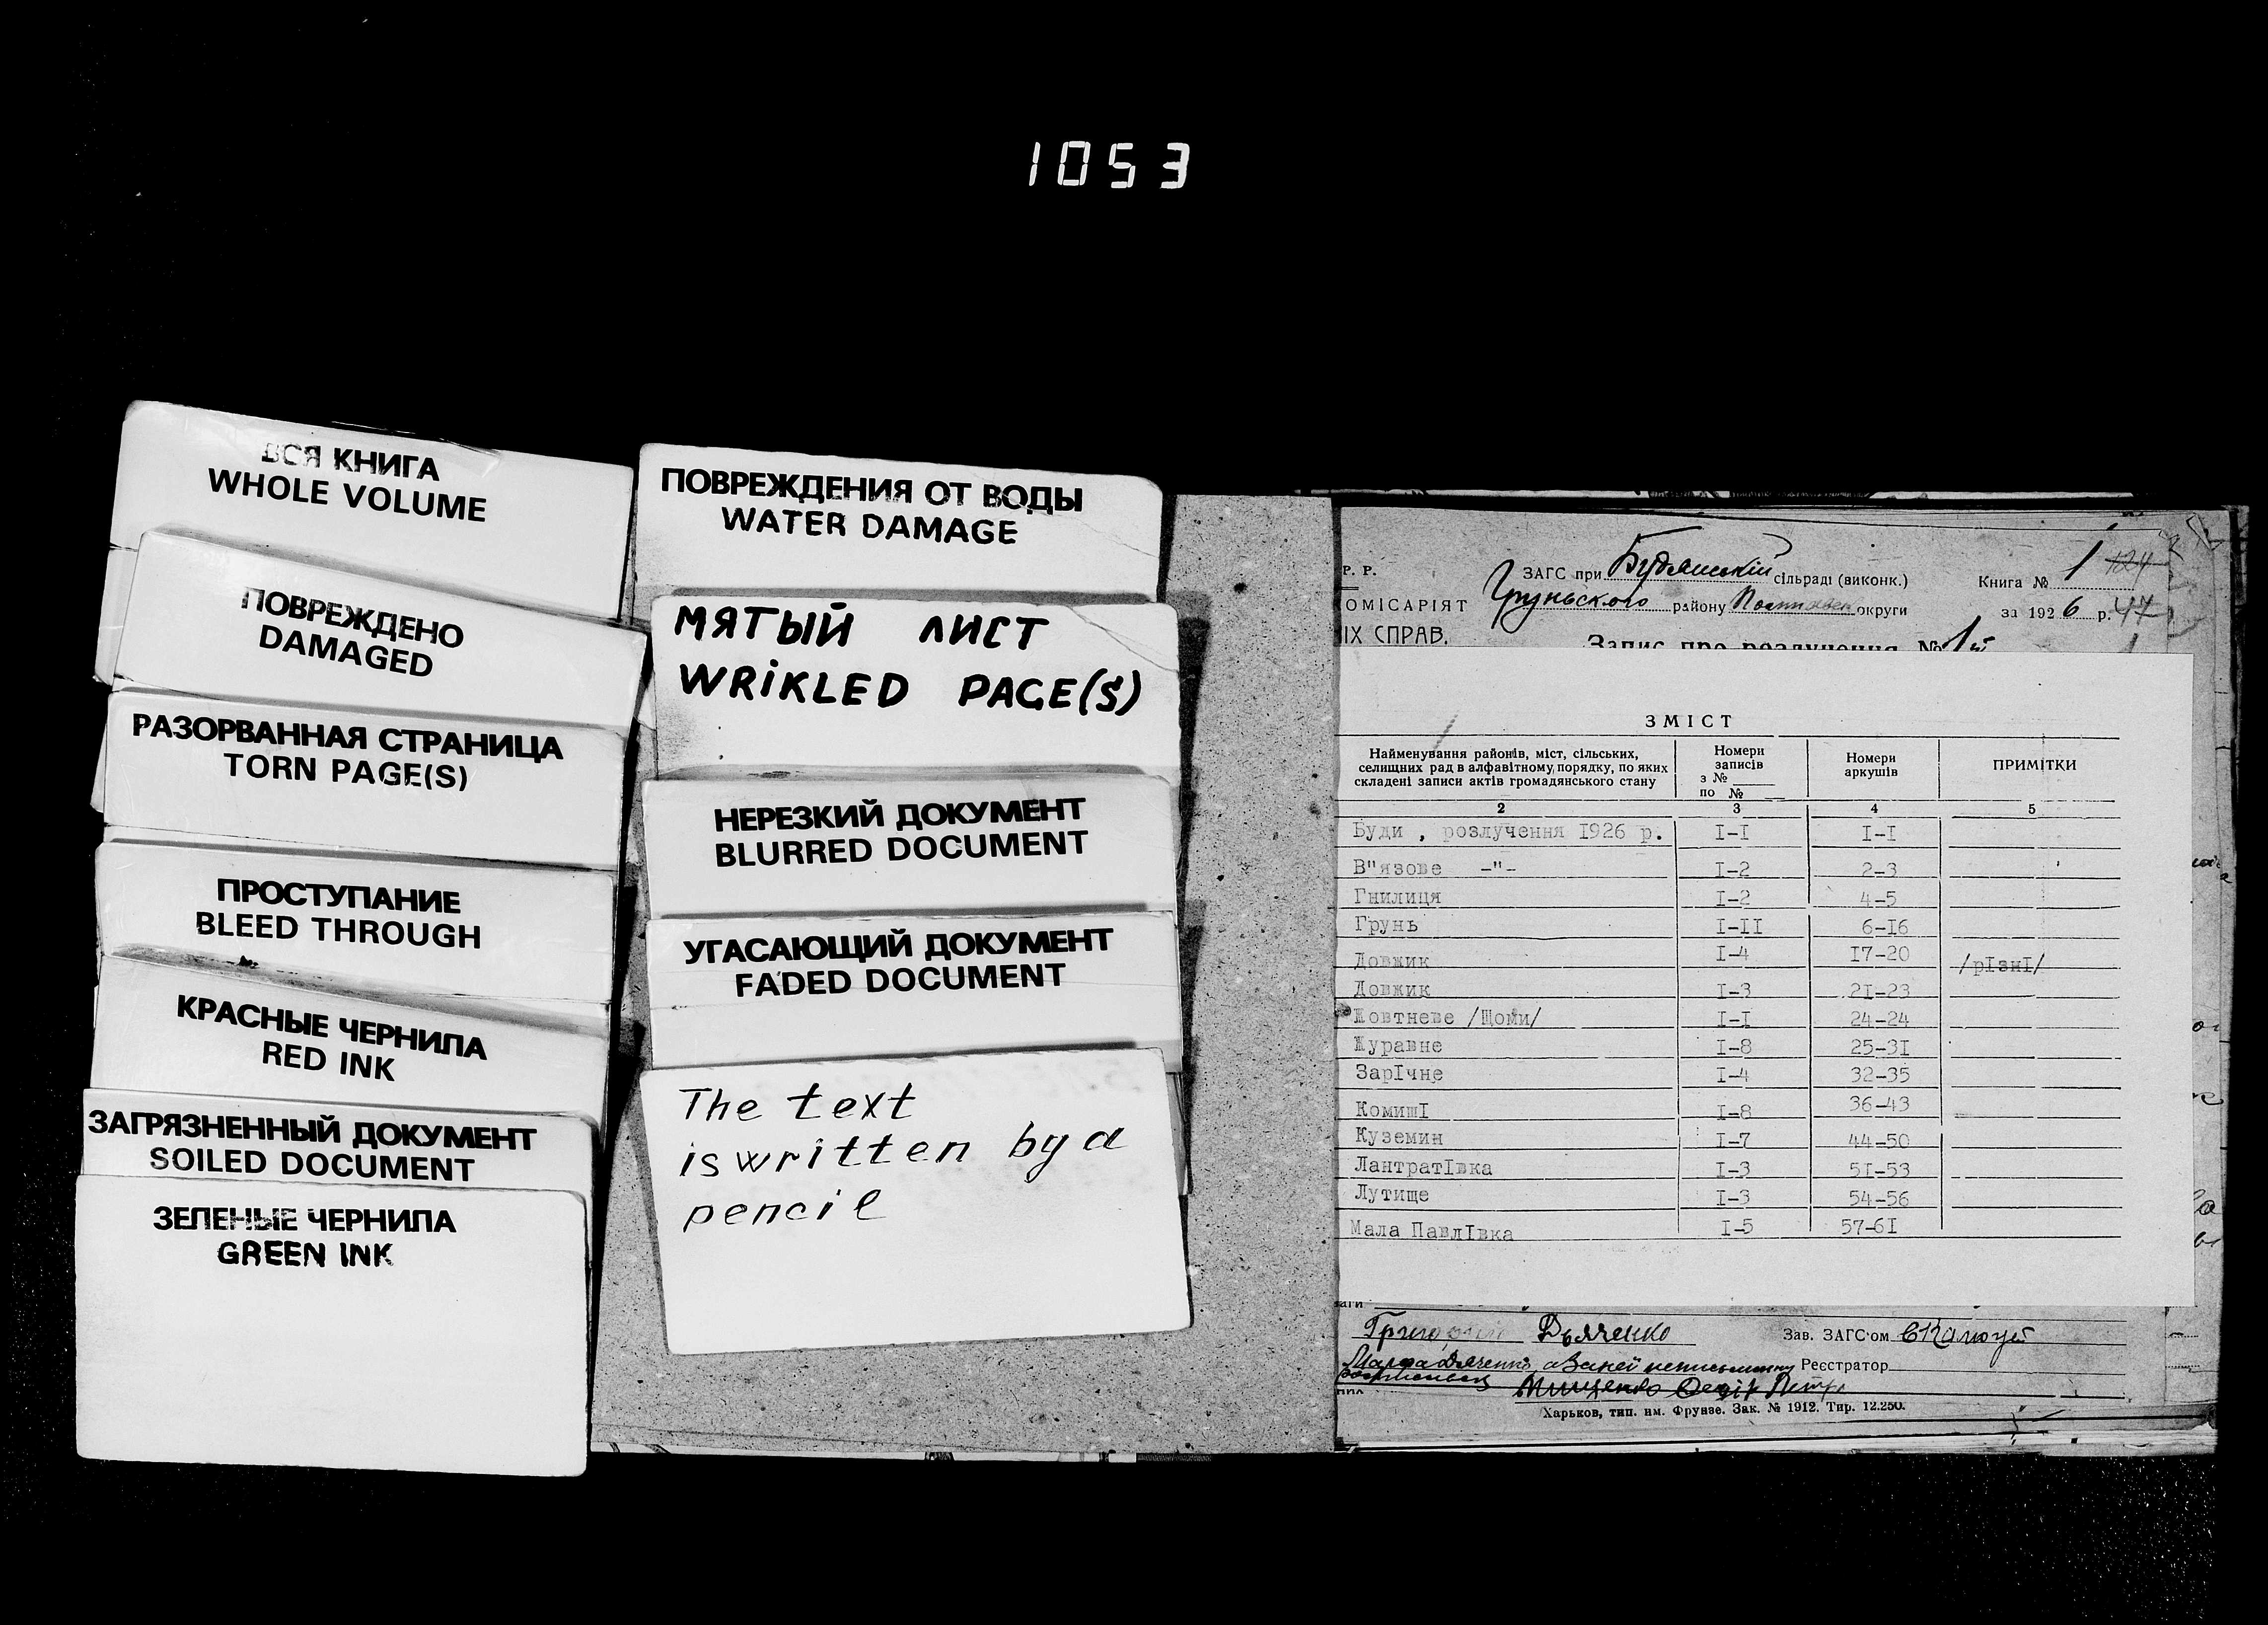 1053
ВСЯ КНИГА
WHOLE VOLUME
ПОВРЕЖДЕНО
DAMAGED
РАЗОРВАННАЯ СТРАНИЦА
TORN PAGE(S)
ПРОСТУПАНИЕ
BLEED THROUGH
КРАСНЫЕ ЧЕРНИЛА
RED INK
ЗАГРЯЗНЕННЫЙ ДОКУМЕНТ
SOILED DOCUMENT
ЗЕЛЕНЫЕ ЧЕРНИЛА
GREEN INK
ПОВРЕЖДЕНИЯ ОТ ВОДЫ
WATER DAMAGE
МЯТЫЙ ЛИСТ
WRIKLED PAGE(S)
НЕРЕЗКИЙ ДОКУМЕНТ
BLURRED DOCUMENT
УГАСАЮЩИЙ ДОКУМЕНТ
FADED DOCUMENT
The text
is written by a
pencil
Р. Р. ЗАГС при Будянській сільраді (виконк.) Книга № 1 124
ОМІСАРІЯТ Груньского району округи за 1926 р. 47
ІХ СПРАВ.
Запис про розлучення №
ЗМІСТ
Найменування районів, міст, сільських, селищних рад в алфавітному порядку, по яких складені записи актів громадянського стану Номери записів з № по № Номери аркушів ПРИМІТКИ
2 3 4 5
Буди , розлучення I926 р. I-I I-I
В"язове -"- I-2 2-3
Гнилиця I-2 4-5
Грунь I-II 6-I6
Довжик I-4 I7-20 /рIзнI/
Довжик I-3 2I-23
Жовтневе /Щоми/ I-I 24-24
Журавне I-8 25-3I
ЗарIчне I-4 32-35
КомишI I-8 36-43
Куземин I-7 44-50
ЛантратIвка I-3 5I-53
Лутище I-3 54-56
Мала ПавлIвка I-5 57-6I
Григорій Дьяченко Зав. ЗАГС'ом
Реєстратор
Харьков, тип. им. Фрунзе. Зак. № 1912. Тир. 12.250.